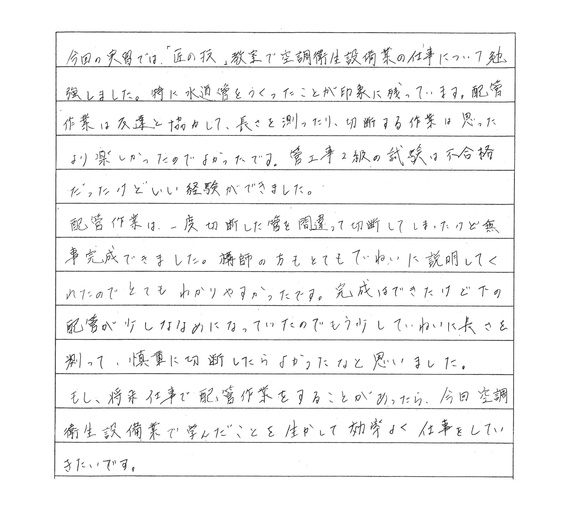 今回の実習では、「匠の技」教室で空調衛生設備業の仕事について勉
強しました。特に水道管をつくったことが印象に残っています。配管
作業は友達と協力して、長さを測ったり、切断する作業は思った
より楽しかったのでよかったです。管工事2級の試験は不合格
だったけどいい経験ができました。
配管作業は、一度切断した管を間違って切断してしまたけど無
事完成できました。講師の方もとてもていねいに説明してく
れたのでとてもわかりやすかったです。完成はできたけど下の
配管が少しななめになっていたのでもう少していねいに長さを
測って、慎重に切断したらよかったなと思いました。
もし、将来仕事で配管作業をすることがあったら、今回空調
衛生設備業で学んだことを生かして効率よく仕事をしてい
きたいです。